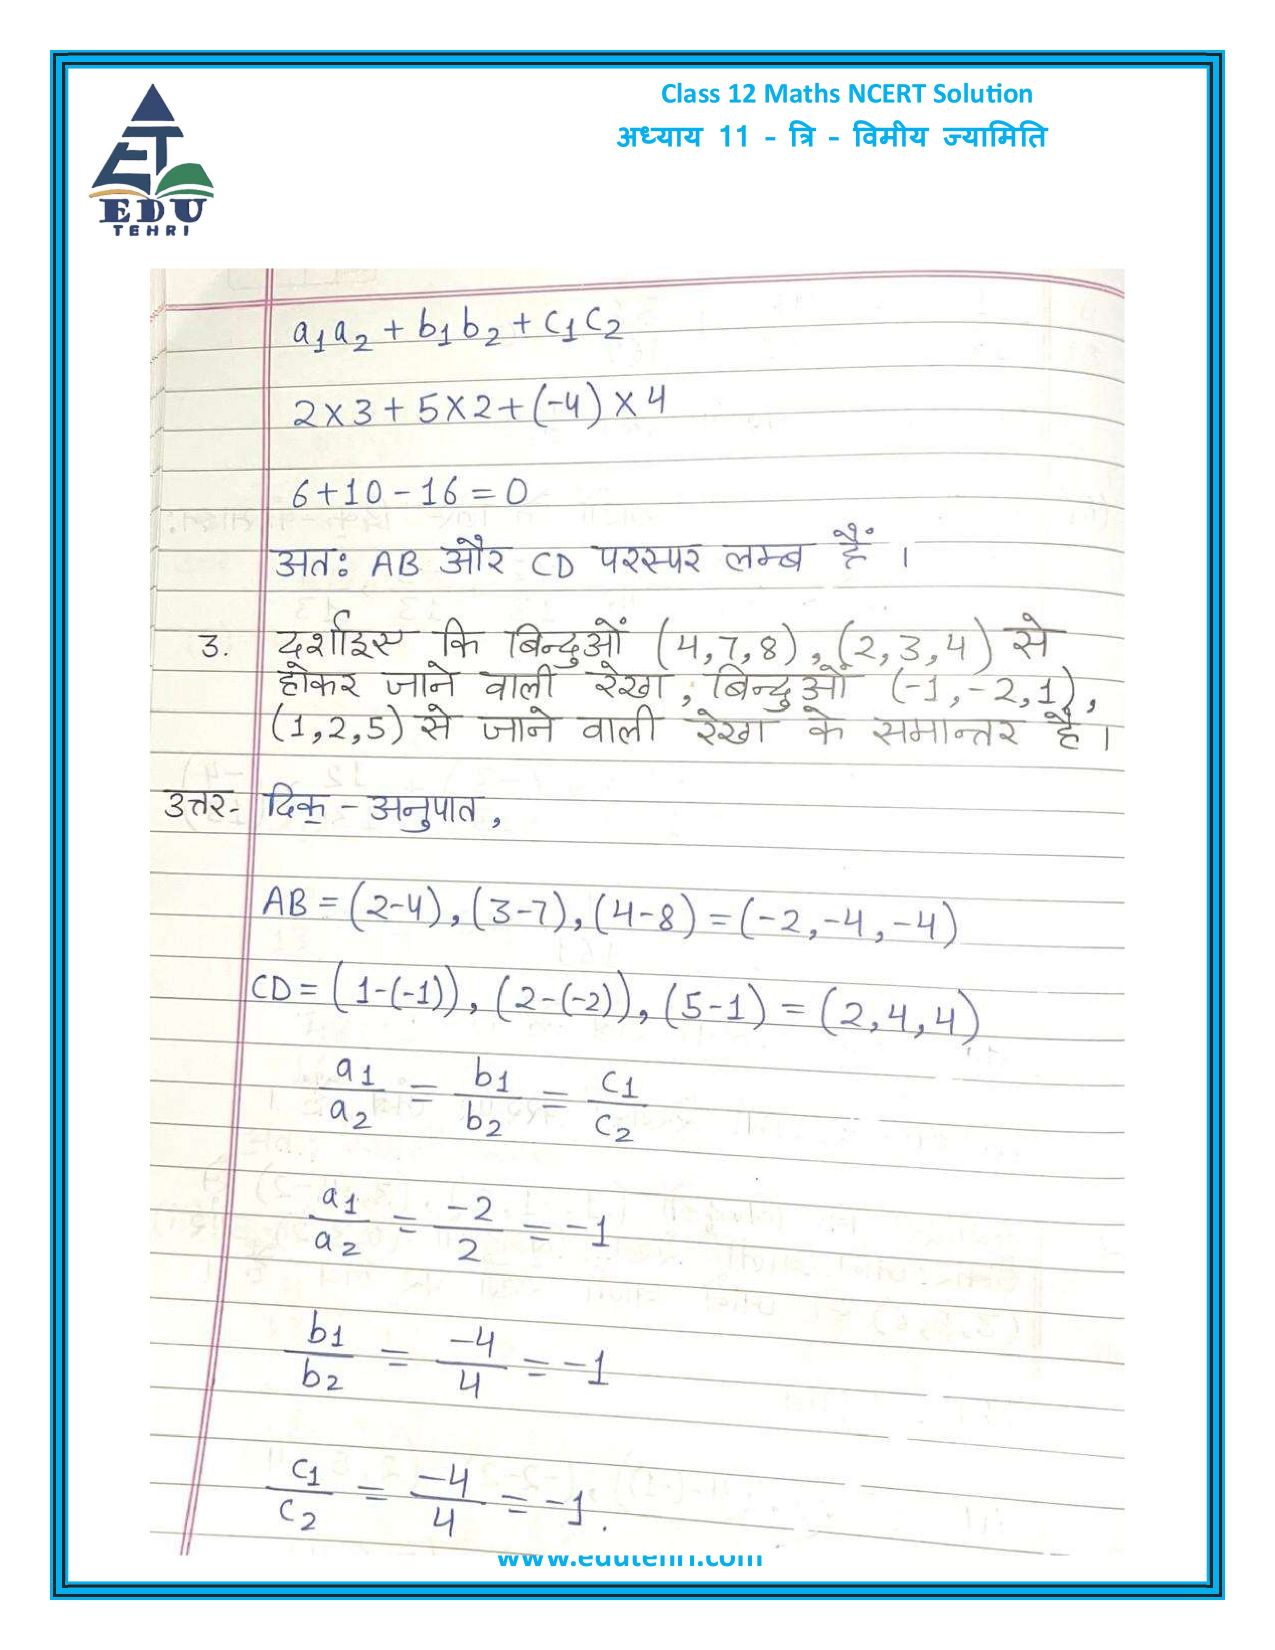 Class 12 Maths NCERT Solution
अध्याय 11 - त्रि - विमीय ज्यामिति
EDU
TEHRI
a₁a₂ + b₁b₂ + c₁c₂
2×3 + 5×2 + (-4) × 4
6+10-16 = 0
अतः AB और CD परस्पर लम्ब हैं ।
3. दर्शाइए कि बिन्दुओं (4,7,8), (2,3,4) से
होकर जाने वाली रेखा, बिन्दुओं (-1,-2,1),
(1,2,5) से जाने वाली रेखा के समान्तर है ।
उत्तर- दिक् - अनुपात,
AB = (2-4), (3-7), (4-8) = (-2,-4,-4)
CD = (1-(-1)), (2-(-2)), (5-1) = (2,4,4)
a₁/a₂ = b₁/b₂ = c₁/c₂
a₁/a₂ = -2/2 = -1
b₁/b₂ = -4/4 = -1
c₁/c₂ = -4/4 = -1.
www.edutehri.com